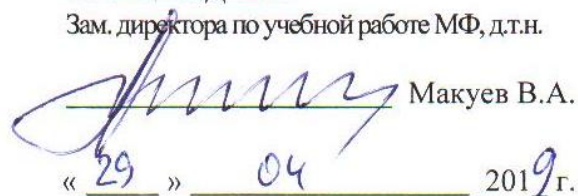 Зам. директора по учебной работе МФ, д.т.н.
Макуев В.А.
« 29 » 04 2019 г.